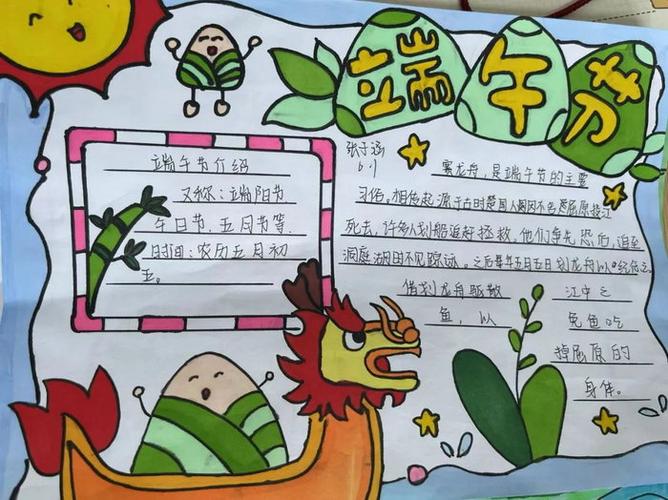 端午节
端午节介绍
又称:端阳节
午日节、五月节等.
时间:农历五月初
五。
张子涵
6.1
赛龙舟,是端午节的主要
习俗。相传起源于古时楚国人因不舍屈原投江
死去,许多人划船追赶拯救。他们争先恐后,追至
洞庭湖时不见踪迹。之后每年五月五日划龙舟以纪念之。
借划龙舟驱散
江中之
鱼,以
免鱼吃
掉屈原的
身体。